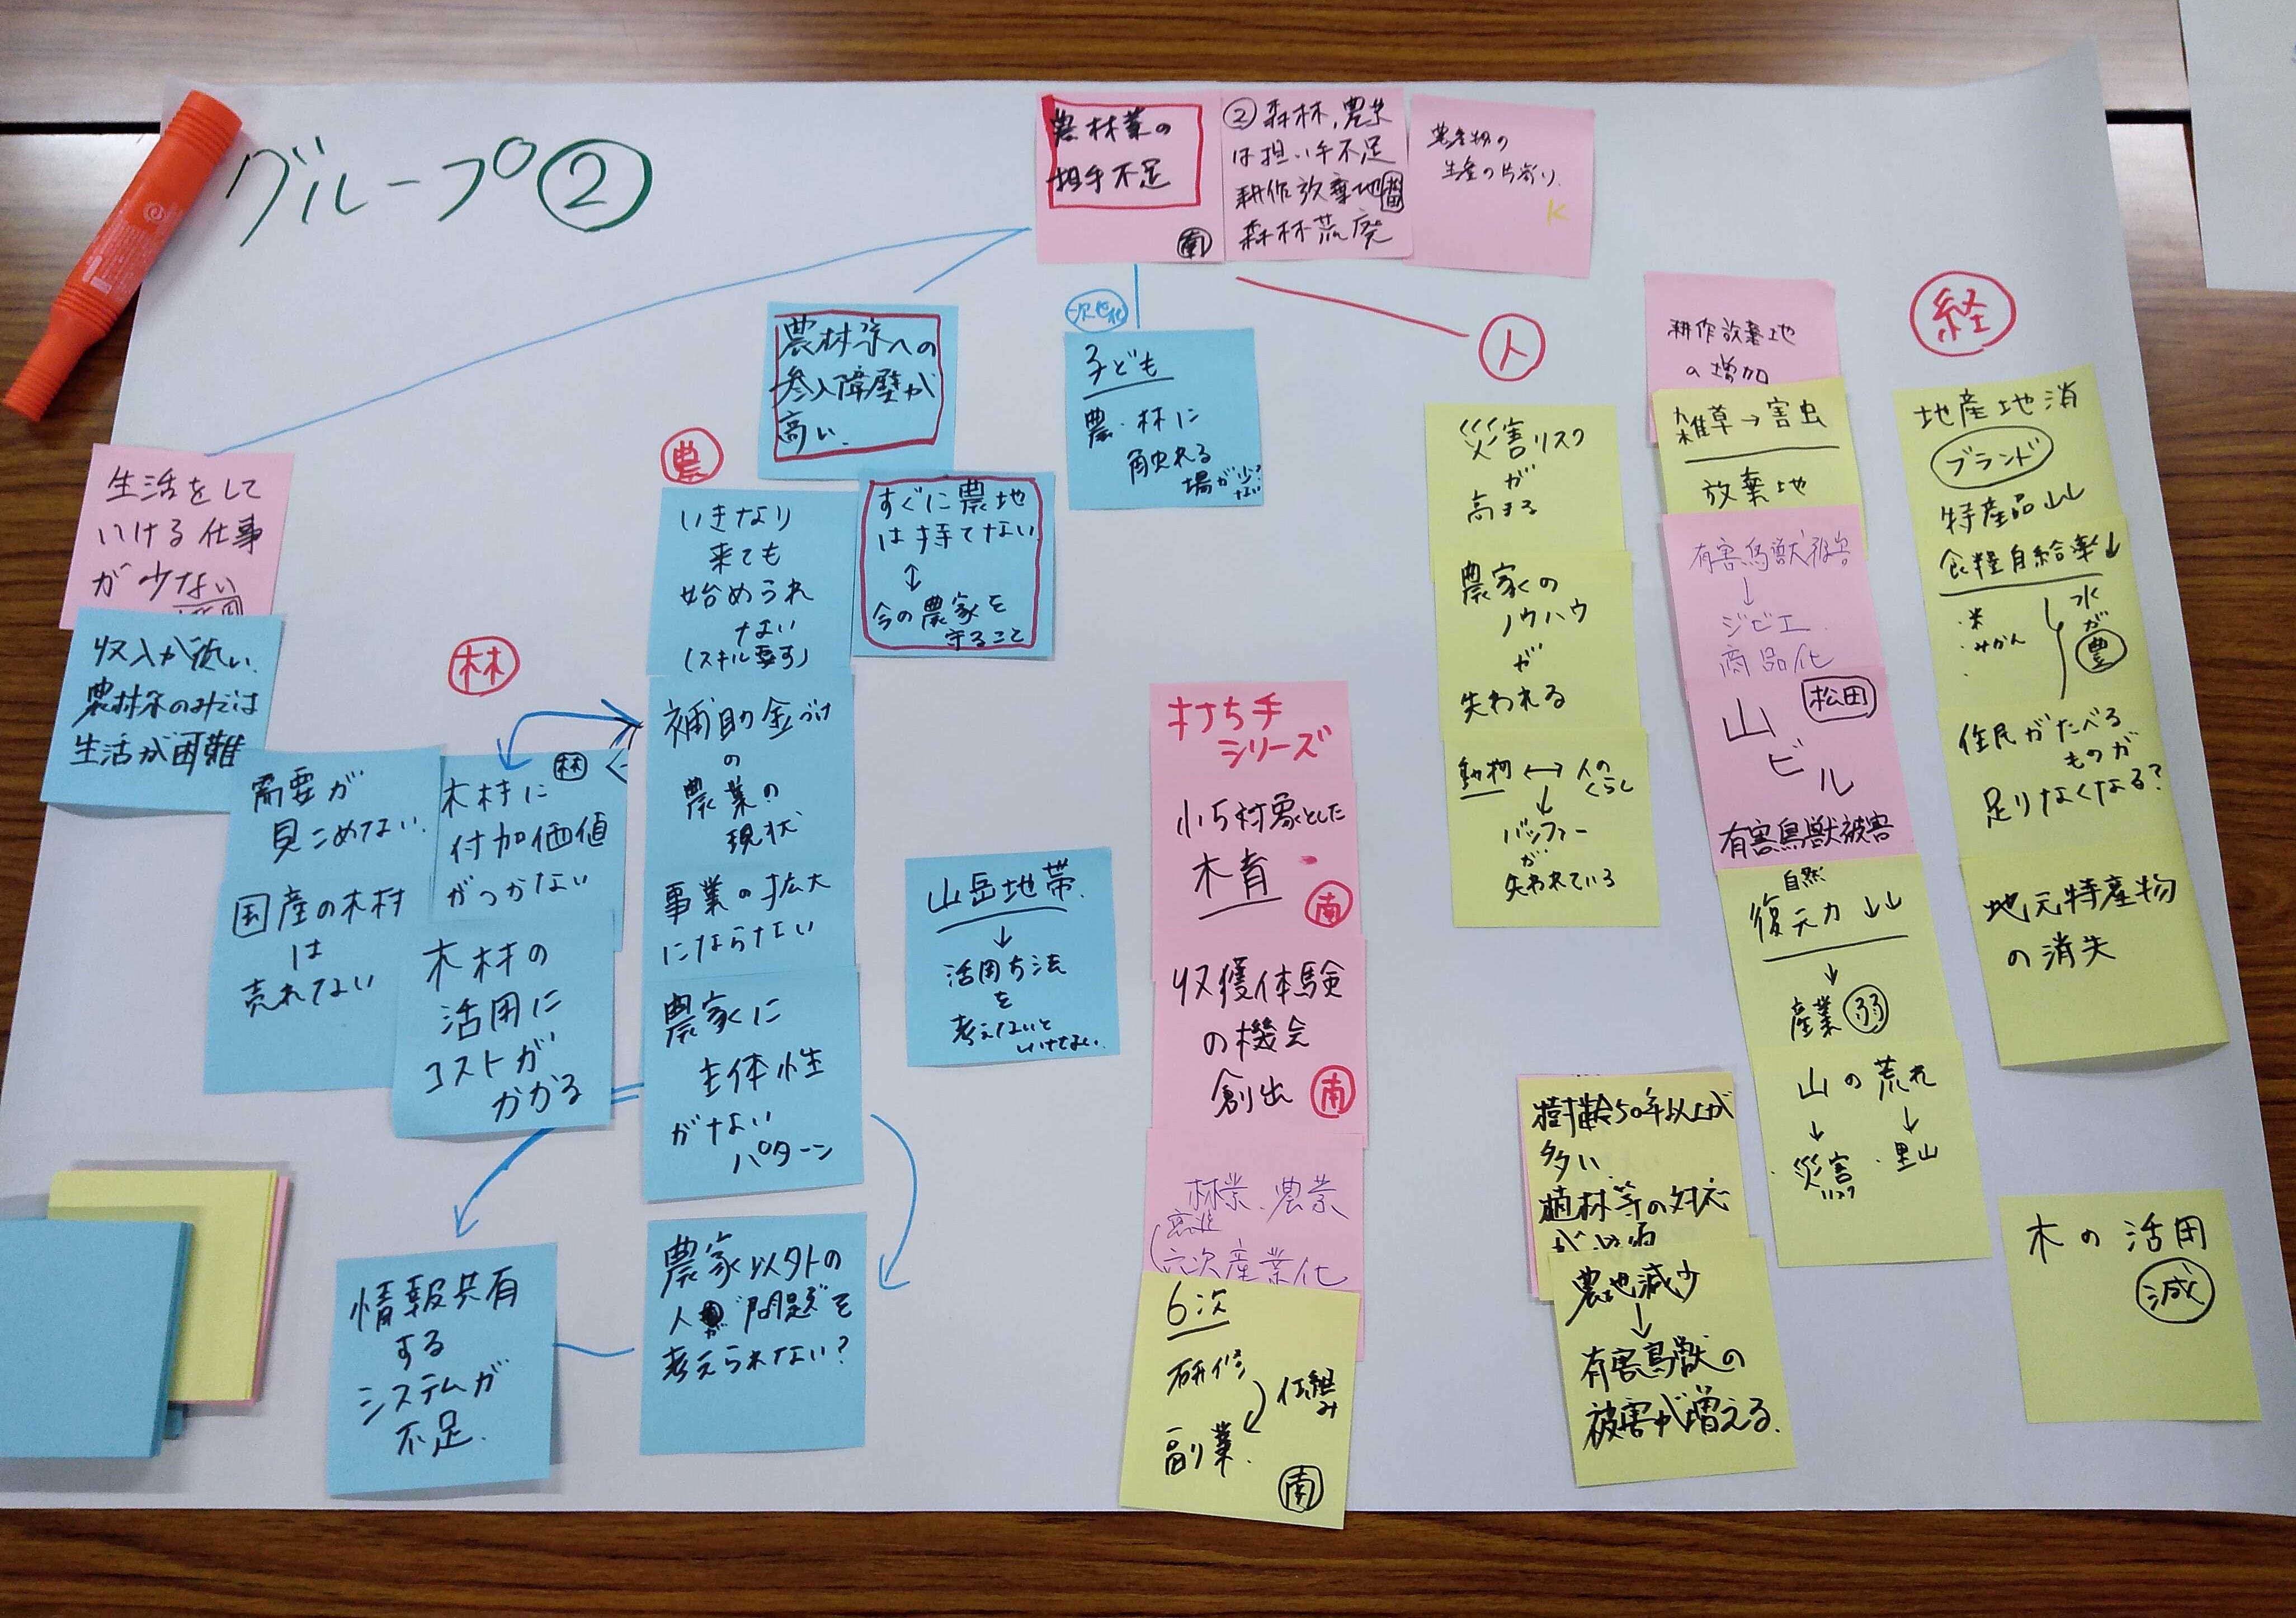 グループ②
農林業の
担手不足
南
②森林,農業
は担い手不足
耕作放棄地
森林荒廃
農産物の
生産の片寄り
K
農林業への
参入障壁が
高い.
次世代
子ども
農・林に
触れる
場が少ない
人
災害リスク
が
高まる
農家の
ノウハウ
が
失われる
動物 ↔ 人の
くらし
↓
バッファー
が
失われている
耕作放棄地
の増加
雑草→害虫
放棄地
有害鳥獣被害
↓
ジビエ
商品化
松田
山
ビル
有害鳥獣被害
自然
復元力↓↓
↓
産業 弱
山の荒れ
↓ ↓
災害・里山
リスク
経
地産地消
ブランド
特産品↓↓
食糧自給率↓
・米
・みかん
水
が
豊
住民がたべる
ものが
足りなくなる?
地元特産物
の消失
木の活用
減
生活をして
いける仕事
が少ない
収入が低い.
農林業のみでは
生活が困難
林
需要が
見こめない.
国産の木材
は
売れない
木材に 林
付加価値
がつかない
木材の
活用に
コストが
かかる
農
いきなり
来ても
始められ
ない
(スキル要す)
すぐに農地
は持てない
↕
今の農家を
守ること
補助金づけ
の
農業の
現状
事業の拡大
にならない
農家に
主体性
がない
パターン
農家以外の
人が問題を
考えられない?
情報共有
する
システムが
不足.
山岳地帯.
↓
活用方法
を
考えないと
いけない.
打ち手
シリーズ
小5対象とした
木育
南
収穫体験
の機会
創出 南
林業、農業
六次産業化
6次
研修
仕組み
副業.
南
樹齢50年以上が
多い
植林等の対応
農地減少
↓
有害鳥獣の
被害が増える.